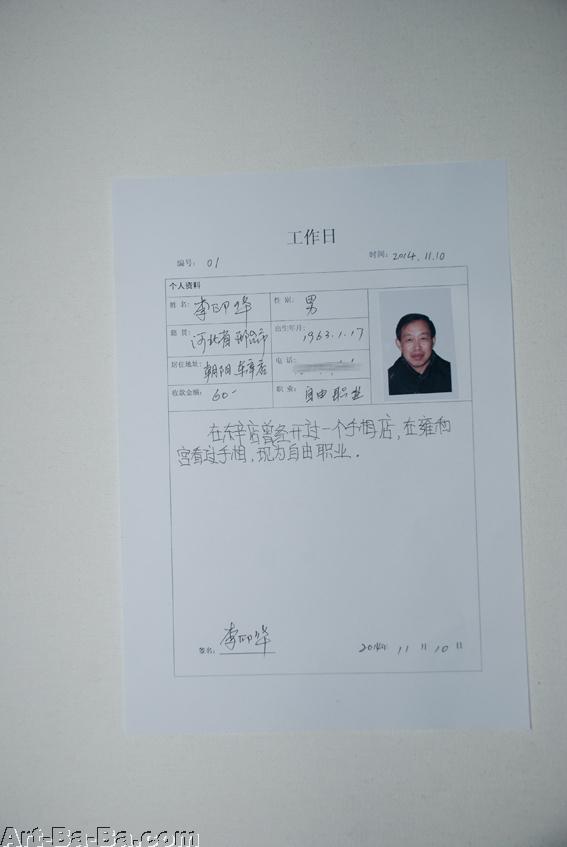 工作日
编号： 01 时间：2014.11.10
个人资料
姓 名： 李印华 性 别： 男
籍 贯： 河北省邢台市 出生年月： 1963.1.17
居住地址： 朝阳 东辛店 电 话：
收款金额： 60- 职 业： 自由职业
在东辛店曾经开过一个手相店，在雍和
宫看过手相，现为自由职业．
签名： 李印华 2014年 11 月 10 日
Art-Ba-Ba.com